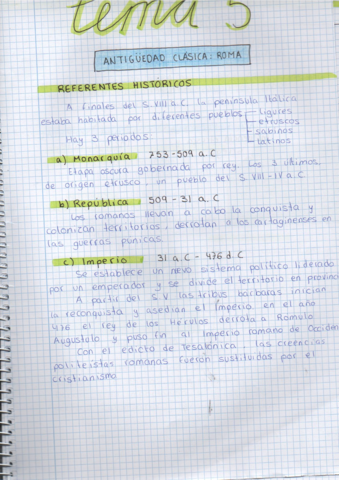 tema 5
ANTIGÜEDAD CLÁSICA: ROMA
REFERENTES HISTÓRICOS
A finales del S.VIII a.C. la península Itálica
estaba habitada por diferentes pueblos ligures
etruscos
sabinos
latinos
Hay 3 periodos
a) Monarquía 753-509 a.C
Etapa oscura gobernada por rey. Los 3 últimos
de origen etrusco, un pueblo del S.VIII-IV a.C.
b) República 509 - 31 a.C
Los romanos llevan a cabo la conquista y
colonizan territorios, derrotan a los cartaginenses en
las guerras púnicas.
c) Imperio 31 a.C - 476 d.C
Se establece un nevo sistema político liderado
por un emperador y se divide el territorio en provincia
A partir del S.V las tribus bárbaras inician
la reconquista y asedian el Imperio en el año
476 el rey de los Hérulos derrota a Romulo
Augustulo y puso fin al Imperio romano de Occiden
Con el edicto de Tesalónica, las creencias
politeístas romanas fueron sustituidas por el
cristianismo